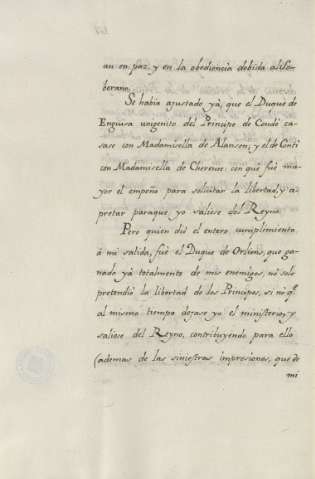 an en paz, y en la obediencia debida al So-
berano.
Se habia ajustado yà, que el Duque de
Enguien unigenito del Principe de Condé ca-
sase con Madamisella de Alanson; y el de Conti
con Madamisella de Chereuse, con que fué ma-
yor el empeño para solicitar la libertad, y a-
pretar paraque yo saliese del Reyno.
Pero quien dió el entero cumplimiento
à mi salida, fué el Duque de Orliens, que ga-
nado yà totalmente de mis enemigos, nó solo
pretendió la libertad de los Principes, si nó q.^e
al mismo tiempo dejase yo el ministerio, y
saliese del Reyno, contribuyendo para ello
(ademas de las siniestras impresiones, que de
mi